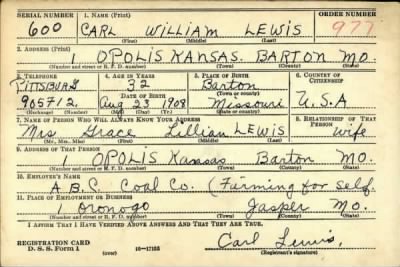 SERIAL NUMBER 1. NAME (Print) ORDER NUMBER
600 CARL WILLIAM LEWIS 977
(First) (Middle) (Last)
2. ADDRESS (Print)
1 OPOLIS KANSAS. BARTON MO.
(Number and street or R. F. D. number) (Town) (County) (State)
3. TELEPHONE 4. AGE IN YEARS 5. PLACE OF BIRTH 6. COUNTRY OF CITIZENSHIP
PITTSBURG 32 Barton
DATE OF BIRTH (Town or county)
965712. Aug 23 1908 Missouri U.S.A
(Exchange) (Number) (Mo.) (Day) (Yr.) (State or country)
7. NAME OF PERSON WHO WILL ALWAYS KNOW YOUR ADDRESS 8. RELATIONSHIP OF THAT PERSON
Mrs Grace Lillian LEWIS wife
(Mr., Mrs., Miss) (First) (Middle) (Last)
9. ADDRESS OF THAT PERSON
1 OPOLIS Kansas Barton MO.
(Number and street or R. F. D. number) (Town) (County) (State)
10. EMPLOYER'S NAME
A.B.C. Coal Co. (Farming for self.
11. PLACE OF EMPLOYMENT OR BUSINESS
1 Oronogo Jasper Mo.
(Number and street or R. F. D. number) (Town) (County) (State)
I AFFIRM THAT I HAVE VERIFIED ABOVE ANSWERS AND THAT THEY ARE TRUE.
REGISTRATION CARD
D. S. S. Form 1 (over) 16-17105 Carl Lewis,
(Registrant's signature)